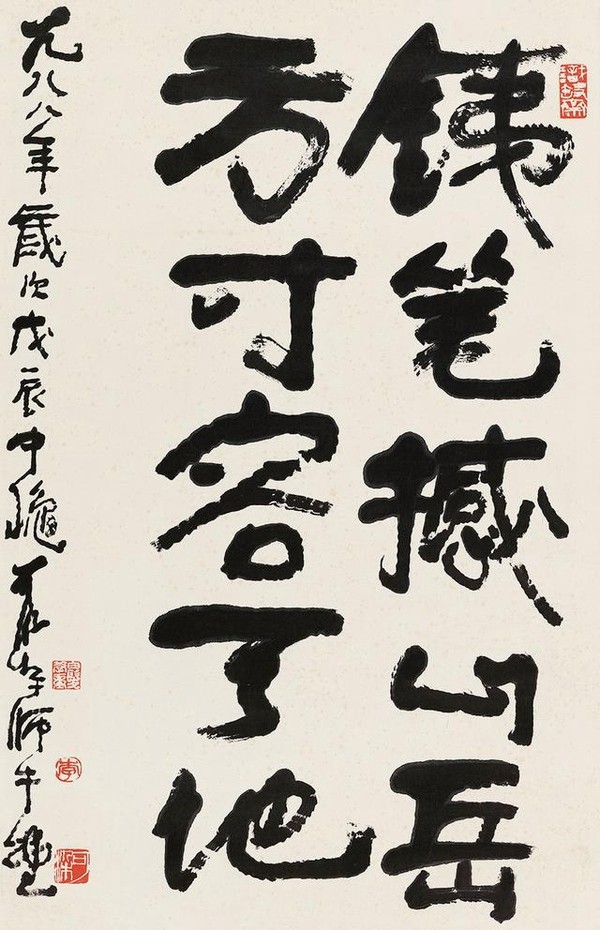 銕笔撼山岳
方寸容天地
一九八八年歲次戊辰中龝可染于师牛堂